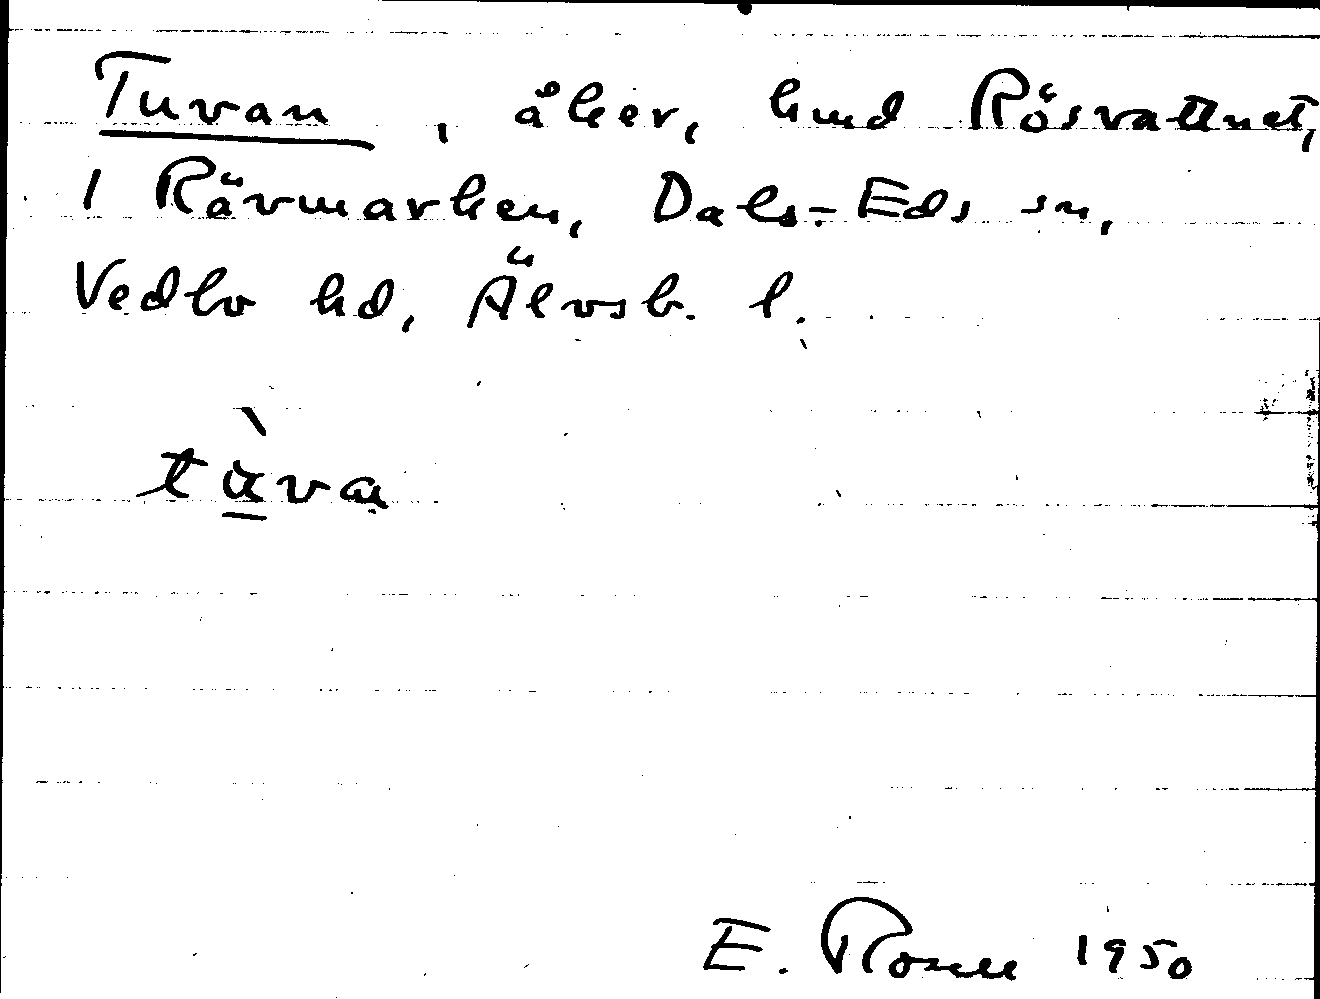 Tuvan, åker, hmd Rösvattnet,
1 Rävmarken, Dals-Eds sn,
Vedbo hd, Älvsb. l.
tùva
E. Rosell 1950